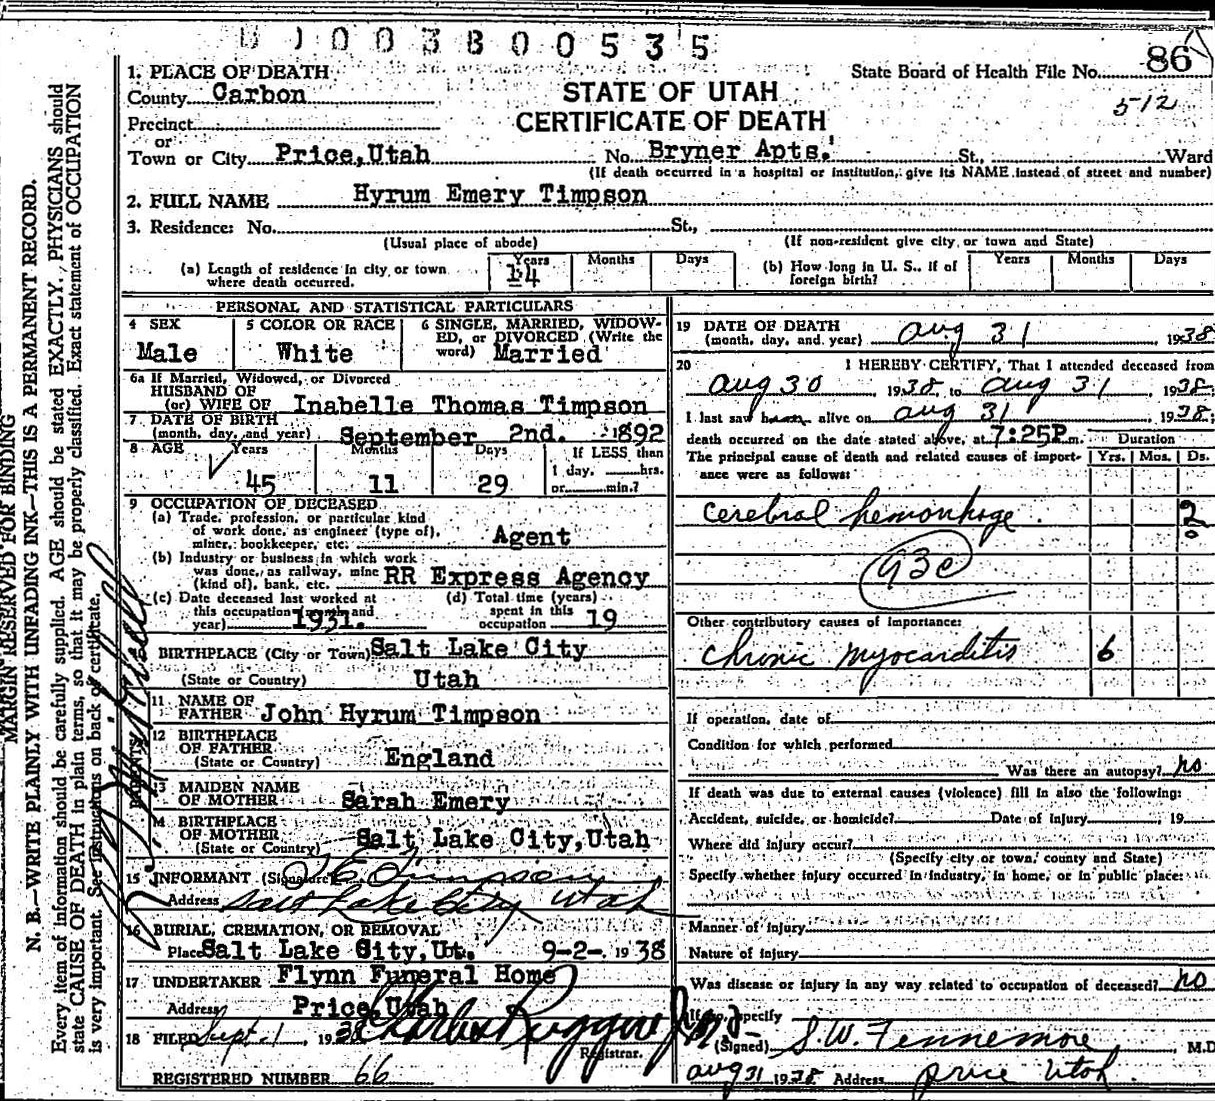 0 1 0 0 3 8 0 0 5 3 5
State Board of Health File No. 86
512
1. PLACE OF DEATH
County Carbon
STATE OF UTAH
CERTIFICATE OF DEATH
Precinct
or
Town or City Price, Utah No. Bryner Apts. St., Ward
(If death occurred in a hospital or institution, give its NAME instead of street and number)
2. FULL NAME Hyrum Emery Timpson
3. Residence: No. St.,
(Usual place of abode) (If non-resident give city or town and State)
(a) Length of residence in city or town where death occurred. Years 14 Months Days
(b) How long in U. S., if of foreign birth? Years Months Days
PERSONAL AND STATISTICAL PARTICULARS
4 SEX Male
5 COLOR OR RACE White
6 SINGLE, MARRIED, WIDOWED, or DIVORCED (Write the word) Married
6a If Married, Widowed, or Divorced
HUSBAND OF
(or) WIFE OF Inabelle Thomas Timpson
7 DATE OF BIRTH
(month, day, and year) September 2nd. 1892
8 AGE Years 45 Months 11 Days 29 If LESS than 1 day, hrs. or min.?
9 OCCUPATION OF DECEASED
(a) Trade, profession, or particular kind of work done, as engineer (type of), miner, bookkeeper, etc. Agent
(b) Industry or business in which work was done, as railway, mine (kind of), bank, etc. RR Express Agency
(c) Date deceased last worked at this occupation (month and year) 1931.
(d) Total time (years) spent in this occupation 19
BIRTHPLACE (City or Town) Salt Lake City
(State or Country) Utah
PARENTS
11 NAME OF FATHER John Hyrum Timpson
12 BIRTHPLACE OF FATHER
(State or Country) England
13 MAIDEN NAME OF MOTHER Sarah Emery
14 BIRTHPLACE OF MOTHER
(State or Country) Salt Lake City, Utah
15 INFORMANT (Signature) Timpson
Address Salt Lake City Utah
16 BURIAL, CREMATION, OR REMOVAL
Place Salt Lake City, Ut. 9-2-, 1938
17 UNDERTAKER Flynn Funeral Home
Address Price, Utah
18 FILED Sept. 1, 1938 Charles Ruggeri Jr. M.D.
Registrar.
REGISTERED NUMBER 66
19 DATE OF DEATH
(month, day, and year) Aug 31, 1938
20 I HEREBY CERTIFY, That I attended deceased from
Aug 30, 1938, to Aug 31, 1938;
I last saw h alive on Aug 31 1938;
death occurred on the date stated above, at 7:25P m.
The principal cause of death and related causes of importance were as follows: Duration Yrs. Mos. Ds.
Cerebral hemorrhage. 2
Other contributory causes of importance:
Chronic myocarditis 6
If operation, date of
Condition for which performed
Was there an autopsy? no
If death was due to external causes (violence) fill in also the following:
Accident, suicide, or homicide? Date of injury, 19
Where did injury occur?
(Specify city or town, county and State)
Specify whether injury occurred in industry, in home, or in public place:
Manner of injury
Nature of injury
Was disease or injury in any way related to occupation of deceased? no
If so, specify
(Signed) S.W. Fennemore, M.D.
Aug 31 1938 Address Price Utah.
MARGIN RESERVED FOR BINDING
N. B.—WRITE PLAINLY WITH UNFADING INK—THIS IS A PERMANENT RECORD.
Every item of information should be carefully supplied. AGE should be stated EXACTLY. PHYSICIANS should
state CAUSE OF DEATH in plain terms, so that it may be properly classified. Exact statement of OCCUPATION
is very important. See instructions on back of certificate.